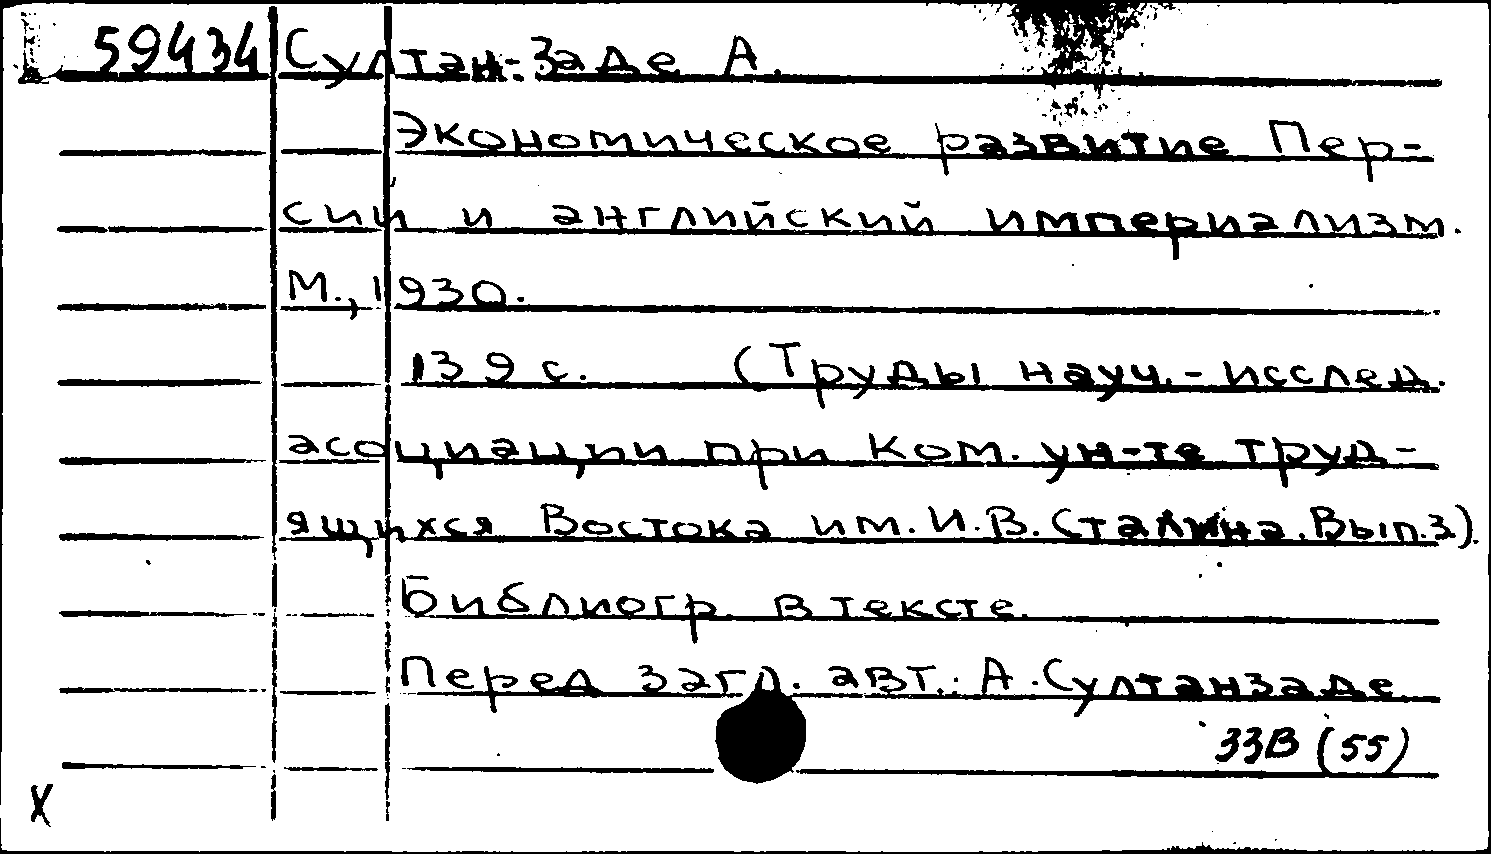 59434 Султан-Заде А.
Экономическое развитие Пер-
сии и английский империализм.
М., 1930.
139 с. (Труды науч.-исслед.
асоциации при Ком. ун-те труд-
ящихся Востока им. И.В. Сталина. Вып. 3).
Библиогр. в тексте.
Перед загл. авт.: А. Султанзаде
33В (55)
X